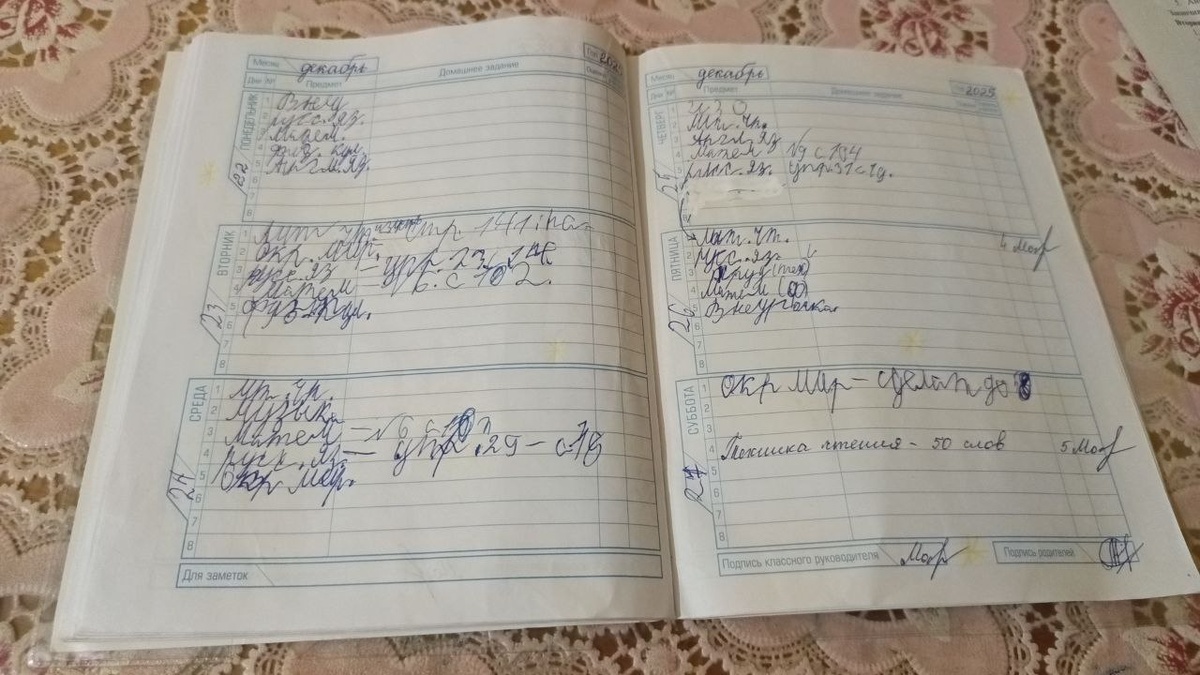 Месяц декабрь
Домашнее задание
Год 202
Дни № Предмет
ПОНЕДЕЛЬНИК 22
1 Внеу
2 русс.яз.
3 Матем.
4 физ. кул
5 Англ.яз.
6
7
8
ВТОРНИК 23
1 Лит чт стр. 141
2 Окр. Мир.
3 русс.яз – упр. 23
4 Матем – 6. с 102.
5 Физ-кул.
6
7
8
СРЕДА 24
1 Лит. чт.
2 Музыка
3 Матем – №6 с
4 русс.яз. – упр. 29 – с
5 Окр Мир.
6
7
8
Для заметок
Месяц декабрь
Год 2025
Предмет
Домашнее задание
ЧЕТВЕРГ 25
1 ИЗО
2 Лит. чт.
3 Англ. яз
4 Матем №9 с 194
5 русс. яз. упр.31 с
ПЯТНИЦА 26
1 Лит. чт. 4
2 русс.яз.
3 труд (тех)
4 Матем
5 Внеурочка.
6
7
8
СУББОТА 27
1 Окр Мир – сделать до 8
2
3
4 Техника чтения – 50 слов 5
5
6
7
8
Подпись классного руководителя
Подпись родителей